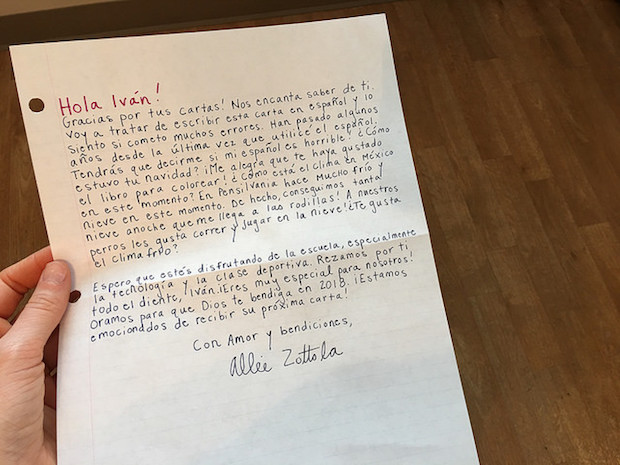 Hola Iván!
Gracias por tus cartas! Nos encanta saber de ti.
Voy a tratar de escribir esta carta en español y lo
siento si cometo muchos errores. Han pasado algunos
años desde la última vez que utilicé el español.
Tendrás que decirme si mi español es horrible! ¿Cómo
estuvo tu navidad? ¡Me alegra que te haya gustado
el libro para colorear! ¿Cómo está el clima en México
en este momento? En Pensilvania hace MUCHO frío y
nieve en este momento. De hecho, conseguimos tanta
nieve anoche que me llega a las rodillas! A nuestros
perros les gusta correr y jugar en la nieve! ¿Te gusta
el clima frío?
Espero que estés disfrutando de la escuela, especialmente
la tecnología y la clase deportiva. Rezamos por ti
todo el diente, Iván. ¡Eres muy especial para nosotros!
Oramos para que Dios te bendiga en 2018. ¡Estamos
emocionados de recibir su próxima carta!
Con Amor y bendiciones,
Allée Zottola